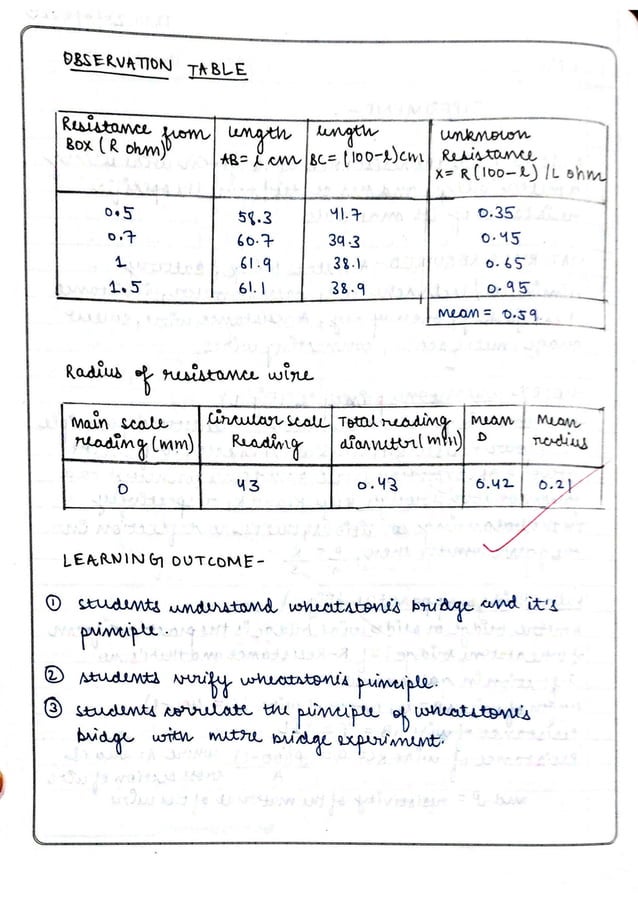 OBSERVATION TABLE
Resistance from BOX (R ohm) | length AB = l cm | length BC = (100-l) cm | unknown Resistance X = R(100-l) / L ohm
0.5 | 58.3 | 41.7 | 0.35
0.7 | 60.7 | 39.3 | 0.45
1 | 61.9 | 38.1 | 0.65
1.5 | 61.1 | 38.9 | 0.95
mean = 0.59
Radius of resistance wire
Main scale reading (mm) | Circular scale Reading | Total reading diameter (mm) | mean D | Mean radius
0 | 43 | 0.43 | 0.42 | 0.21
LEARNING OUTCOME-
① students understand wheatstone's bridge and it's
principle.
② students verify wheatstone's principle.
③ students correlate the principle of wheatstone's
bridge with metre bridge experiment.